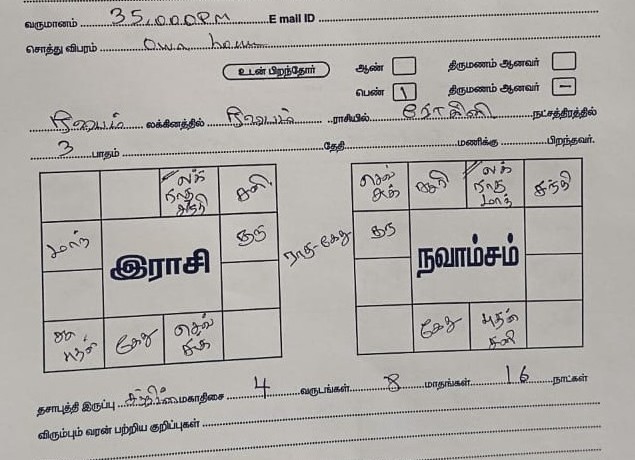 வருமானம் 35,000PM E mail ID
சொத்து விபரம் Own house
உடன் பிறந்தோர் ஆண் திருமணம் ஆனவர்
பெண் 1 திருமணம் ஆனவர் –
ரிஷபம் லக்கினத்தில் ரிஷபம் ராசியில் ரோகிணி நட்சத்திரத்தில்
3 பாதம் தேதி மணிக்கு பிறந்தவர்.
லக்
ராகு
சந்தி
சனி
மாந்
குரு
இராசி
கேது
செவ்
சுக்
ராகு-கேது
செவ்
சுக்
சூரி
லக்
ராகு
மாந்
சந்தி
குரு
நவாம்சம்
கேது
புதன்
சனி
தசாபுத்தி இருப்பு மகாதிசை 4 வருடங்கள் 8 மாதங்கள் 16 நாட்கள்
விரும்பும் வரன் பற்றிய குறிப்புகள்